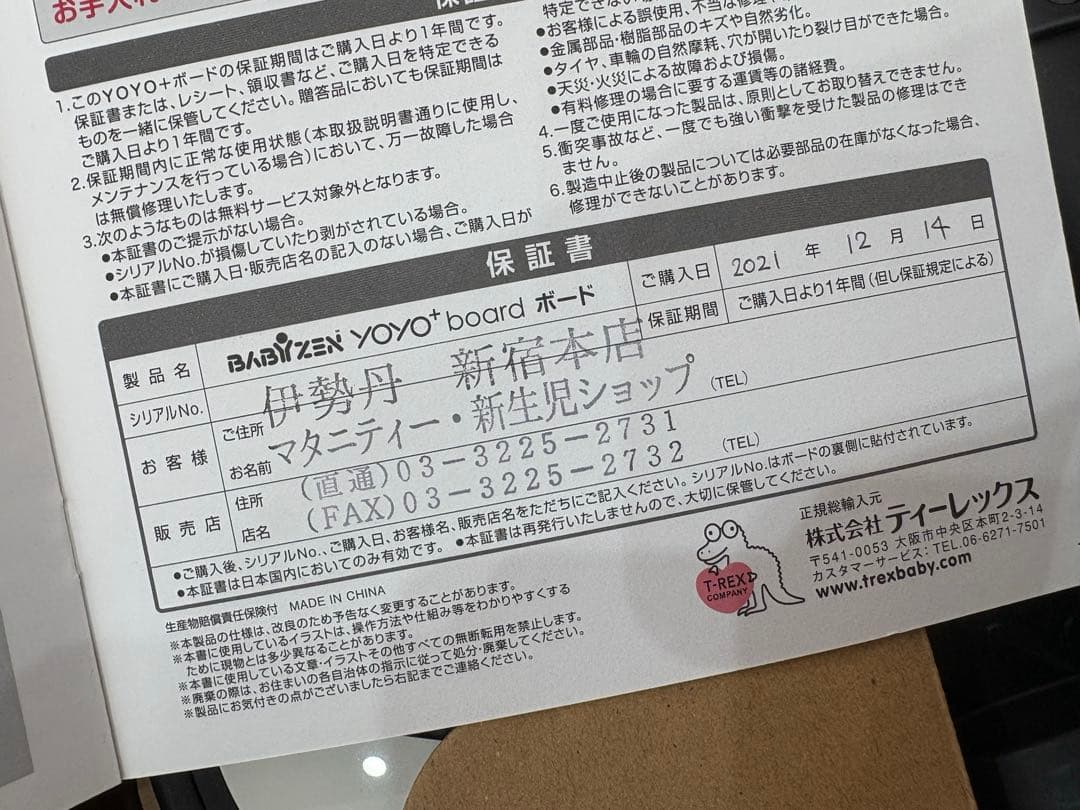 お手入れ
1.このYOYO+ボードの保証期間はご購入日より1年間です。
保証書または、レシート、領収書など、ご購入日を特定できる
ものを一緒に保管してください。贈答品においても保証期間は
ご購入日より1年間です。
2.保証期間内に正常な使用状態(本取扱説明書通りに使用し、
メンテナンスを行っている場合)において、万一故障した場合
は無償修理いたします。
3.次のようなものは無料サービス対象外となります。
●本証書のご提示がない場合。
●シリアルNo.が損傷していたり剥がされている場合。
●本証書にご購入日・販売店名の記入のない場合、ご購入日が
特定できない場合。
●お客様による誤使用、不当な修理や
●金属部品・樹脂部品のキズや自然劣化。
●タイヤ、車輪の自然摩耗、穴が開いたり裂け目ができた場合。
●天災・火災による故障および損傷。
●有料修理の場合に要する運賃等の諸経費。
4.一度ご使用になった製品は、原則としてお取り替えできません。
5.衝突事故など、一度でも強い衝撃を受けた製品の修理はでき
ません。
6.製造中止後の製品については必要部品の在庫がなくなった場合、
修理ができないことがあります。
保証書
製品名 BABYZEN YOYO+ board ボード
ご購入日 2021 年 12 月 14 日
保証期間 ご購入日より1年間(但し保証規定による)
シリアルNo.
お客様 ご住所
お名前 (TEL)
販売店 住所
店名 (TEL)
伊勢丹 新宿本店
マタニティー・新生児ショップ
(直通)03-3225-2731
(FAX)03-3225-2732
●ご購入後、シリアルNo.、ご購入日、お客様名、販売店名をただちにご記入ください。シリアルNo.はボードの裏側に貼付されています。
●本証書は日本国内においてのみ有効です。 ●本証書は再発行いたしませんので、大切に保管してください。
生産物賠償責任保険付 MADE IN CHINA
※本製品の仕様は、改良のため予告なく変更することがあります。
※本書に使用しているイラストは、操作方法や仕組み等をわかりやすくする
ために現物とは多少異なることがあります。
※本書に使用している文章・イラストその他すべての無断転用を禁止します。
※廃棄の際は、お住まいの各自治体の指示に従って処分・廃棄してください。
※製品にお気付きの点がございましたら右記までご連絡ください。
T-REX
COMPANY
正規総輸入元
株式会社ティーレックス
〒541-0053 大阪市中央区本町2-3-14
カスタマーサービス:TEL.06-6271-7501
www.trexbaby.com